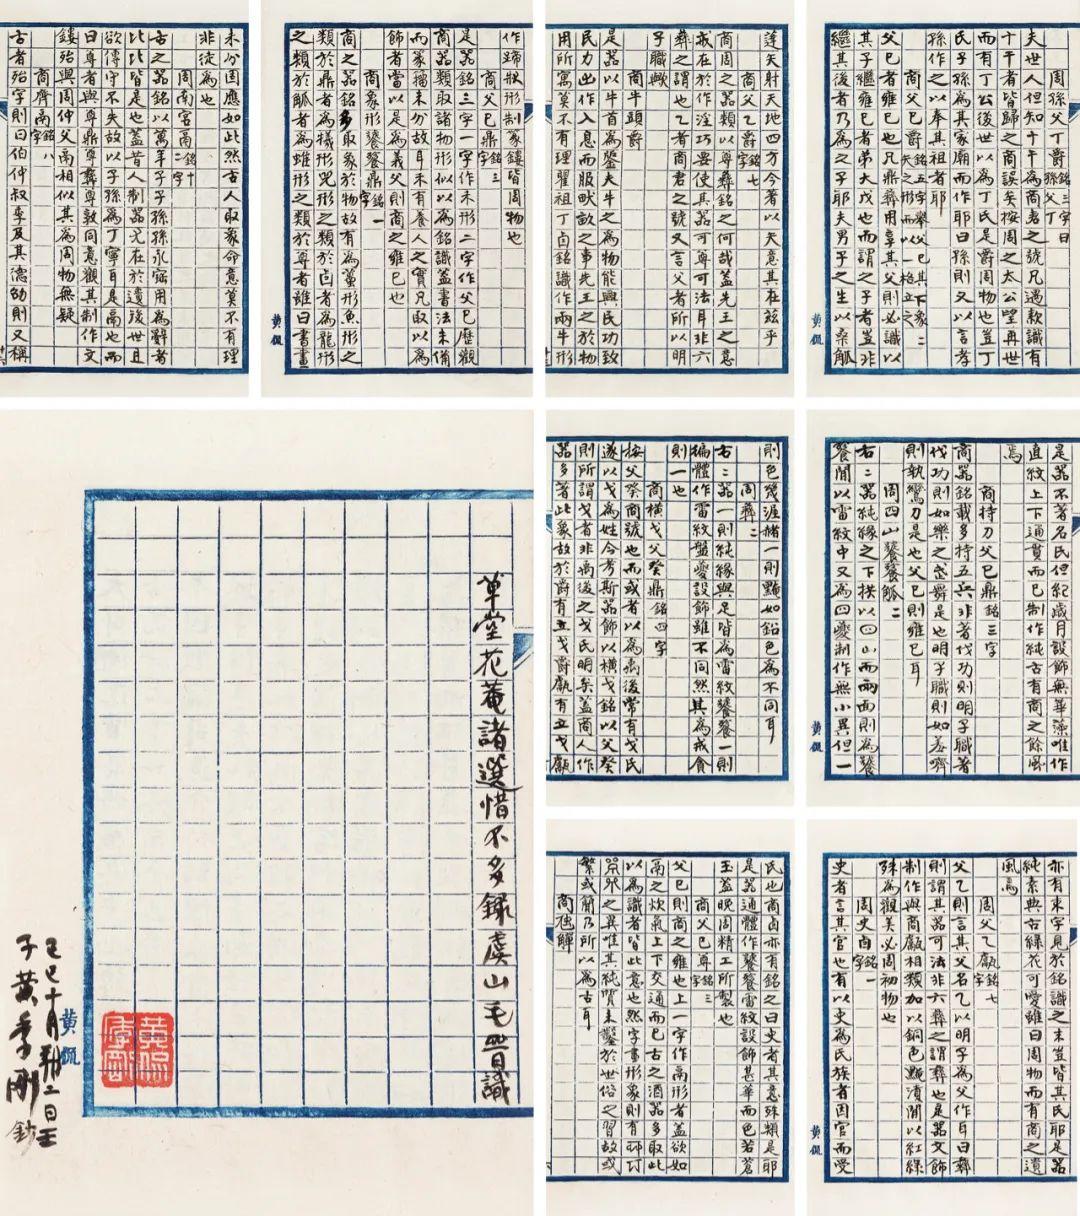 周孫父丁爵 銘三字曰孫父丁
夫世人但知十干為商者之號凡遇款識有
十干者皆歸之商誤矣按周之太公望再世
而有丁公後世以為丁氏是爵周物也豈丁
氏子孫為其家廟而作耶曰孫則又以言孝
孫作之以奉其祖者耶
商父己爵 銘五字舉父己其下象二矢之形而以一格立之
父己者雍己也凡鼎彝用享其父則必識以
其子繼雍己者弟大戊也而謂之子者豈非
繼其後者乃為之子耶夫男子之生以桑弧
黃侃
蓬矢射天地四方今著以矢意其在玆乎
商父乙彝 銘七字
商周之器類以尊彝銘之何哉蓋先王之意
戒在於作淫巧要使其器可尊可法耳非六
彝之謂也乙者商君之號又言父者所以明
子職歟
商牛頭爵
是器以牛首為鋬夫牛之為物能興民功致
民力出作入息而服畎畝之事先王之於物
用所寓莫不有理瞿祖丁卣銘識作兩牛形
作蹄狀形制篆鏤皆周物也
商父己鼎 銘三字
是器銘三字一字作禾形二字作父己歷觀
商器類取諸物形似以為銘識蓋書法未備
而篆籀未分故耳禾有養人之實凡取以為
飾者當以是為義父則商之雍己也
商象形饕餮鼎 銘一字
商之器銘多取象於物故有為蠆形魚形之
類於鼎者為犧形兕形之類於卣者為龍形
之類於觚者為雖形之類於尊者雖曰書畫
黃侃
未分固應如此然古人取象命意莫不有理
非徒為也
周南宮鬲 銘二十字
古之器銘以萬年子子孫孫永寶用為辭者
比比皆是也蓋昔人制器尤在於遺後世且
欲傳守不失故以子孫為丁寧耳是鬲也而
曰尊者與尊鼎尊彝尊敦同意觀其制作文
鏤殆與周仲父鬲相似其為周物無疑
商齊鬲 銘八字
古者殆字則曰伯仲叔季及其德劭則又稱
是器不著名氏但紀歲月設飾無華藻唯作
直紋上下通貫而已制作純古有商之餘風
焉
商持刀父己鼎 銘三字
商器銘載多持五兵非著伐功則明子職著
伐功則如樂之武爵是也明子職則如羞嚌
則執鸞刀是也父己則雍己耳
周四山饕餮觚二
右二器純緣之下拱以四山而兩面則為饕
餮間以雷紋中又為四夔制作無小異但一
黃侃
則色幾渥赭一則黝如鉛色為不同耳
周彝二
右二器一則純緣與足皆為雷紋饕餮一則
徧體作雷紋盤夔設飾雖不同然其為戒貪
則一也
商橫戈父癸鼎 銘四字
按父癸商號也而或者以為禹後常有戈氏
遂以戈為姓今考斯器飾以橫戈銘以父癸
則所謂戈者非禹後之戈氏明矣蓋商人作
器多著此象故於爵有立戈爵甗有立戈甗
亦有東字見於銘識之末豈皆其民耶是器
純素典古綠花可愛雖曰周物而有商之遺
風焉
周父乙甗 銘七字
父乙則言其父名乙以明子為父作耳曰彝
則謂其器可法非六彝之謂彝也是器文飾
制作與商甗相類加以銅色黝漬間以紅綠
殊為觀美必周初物也
周史卣 銘一字
史者言其官也有以史為氏族者因官而受
黃侃
氏也商卣亦有銘之曰史者其意殊類是耶
是器通體作饕餮雷紋設飾甚華而色若蒼
玉蓋晚周精工所製也
商父己尊 銘三字
父己則商之雍也上一字作鬲形者蓋欲如
鬲之炊氣上下交通而已古之酒器多取此
以為識者皆此意也然字畫形象則有
之異唯其純質未鑿於世俗之習故或
繁或簡乃所以為古耳
草堂花菴諸選惜不多錄虞山毛晉識
己巳十月朔二日壬
子黃季剛鈔
黃侃
黃侃季剛